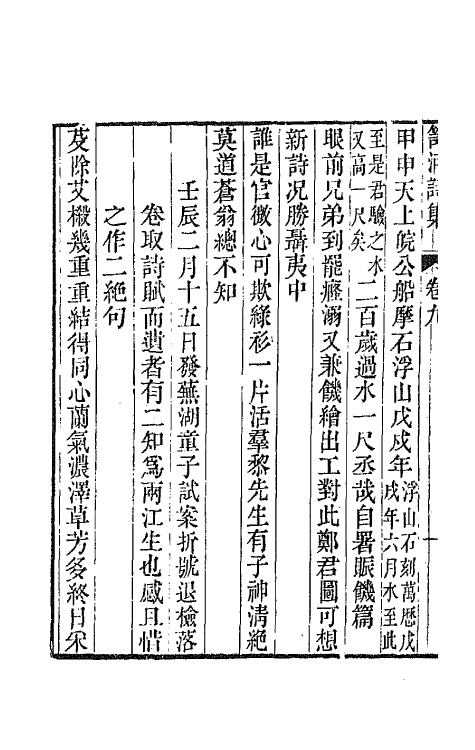 笥河詩集 卷九 一
甲申天上皖公船摩石浮山戊戌年浮山石刻萬歷戊戌年六月水至此
至是君驗之水又高一尺矣二百歲過水一尺丞哉自署賑饑篇
眼前兄弟到罷癃溺又兼饑繪出工對此鄭君圖可想
新詩況勝聶夷中
誰是官微心可欺綠衫一片活羣黎先生有子神清絕
莫道蒼翁總不知
壬辰二月十五日發蕪湖童子試案折號退檢落
卷取詩賦而遺者有二知爲兩江生也感且惜
之作二絕句
芟除艾檓幾重重結得同心蘭氣濃澤草芳多終日采